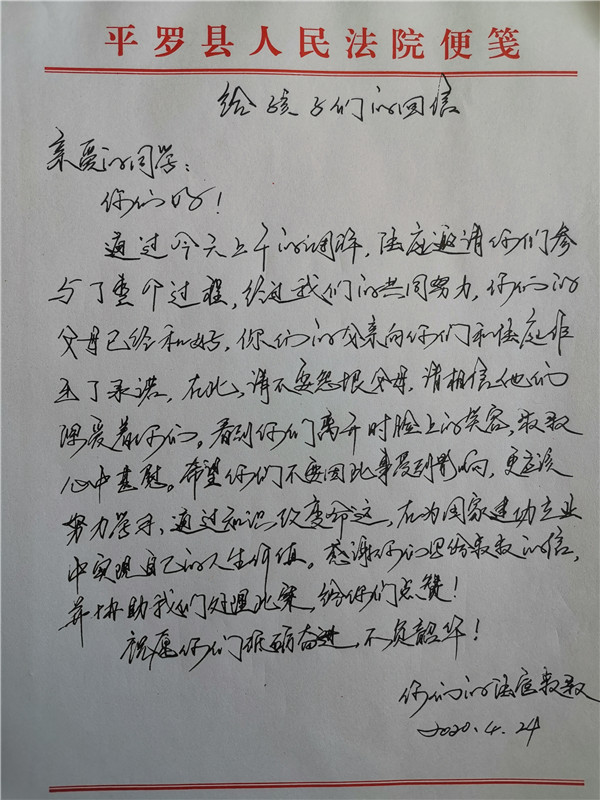 平罗县人民法院便笺
给孩子们的回信
亲爱的同学：
你们好！
通过今天上午的调解，法庭邀请你们参
与了整个过程，经过我们的共同努力，你们的
父母已经和好，你们的父亲向你们和法庭作
出了承诺，在此，请不要怨恨父母，请相信他们
深爱着你们。看到你们离开时脸上的笑容，叔叔
心中甚慰。希望你们不要因此事受到影响，更应该
努力学习，通过知识改变命运，在为国家建功立业
中实现自己的人生价值。感谢你们写给叔叔的信，
并协助我们处理此案，给你们点赞！
祝愿你们砥砺奋进，不负韶华！
你们的法官叔叔
2020.4.24